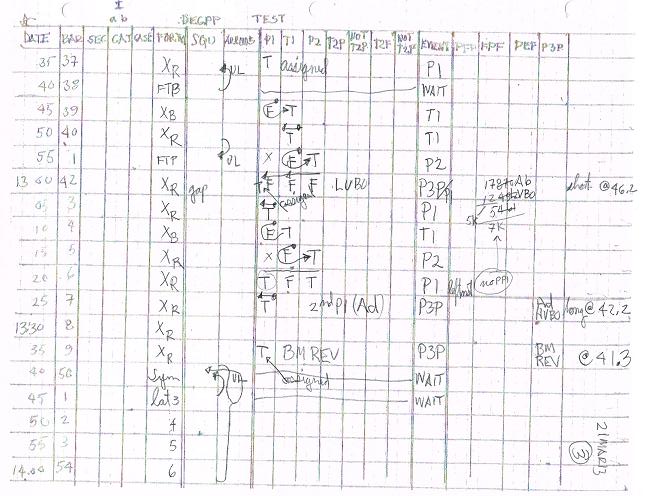 I
a b DEGPP TEST
DATE BAR SEC CAT CASE PORTN SQU P1 T1 P2 T2P NOT T2P T2F NOT T2P EVENT PFP FPF DEF P3P
35 37 XR UL T assigned P1
40 38 FTB WAIT
45 39 XB F T T1
50 40 XR T T1
55 1 FTP UL X F T P2
13 00 42 XR gap T F F LVBO P3P/P1 1787 Ab short @46.2
05 3 XR T assigned P1 5K 54
10 4 XB F T T1 7K
15 5 XR X F T P2
20 6 XR T F T P1 no PP1
25 7 XR T 2nd P1 (Ad) P3P Ad LVBO long @ 42.2
13:30 8 XR
35 9 XR T BM REV P3P BM REV @ 41.3
40 50 Sym UL assigned WAIT
45 1 lat 3 WAIT
50 2 4
55 3 5
14.00 54 6
21 MAR 13
3